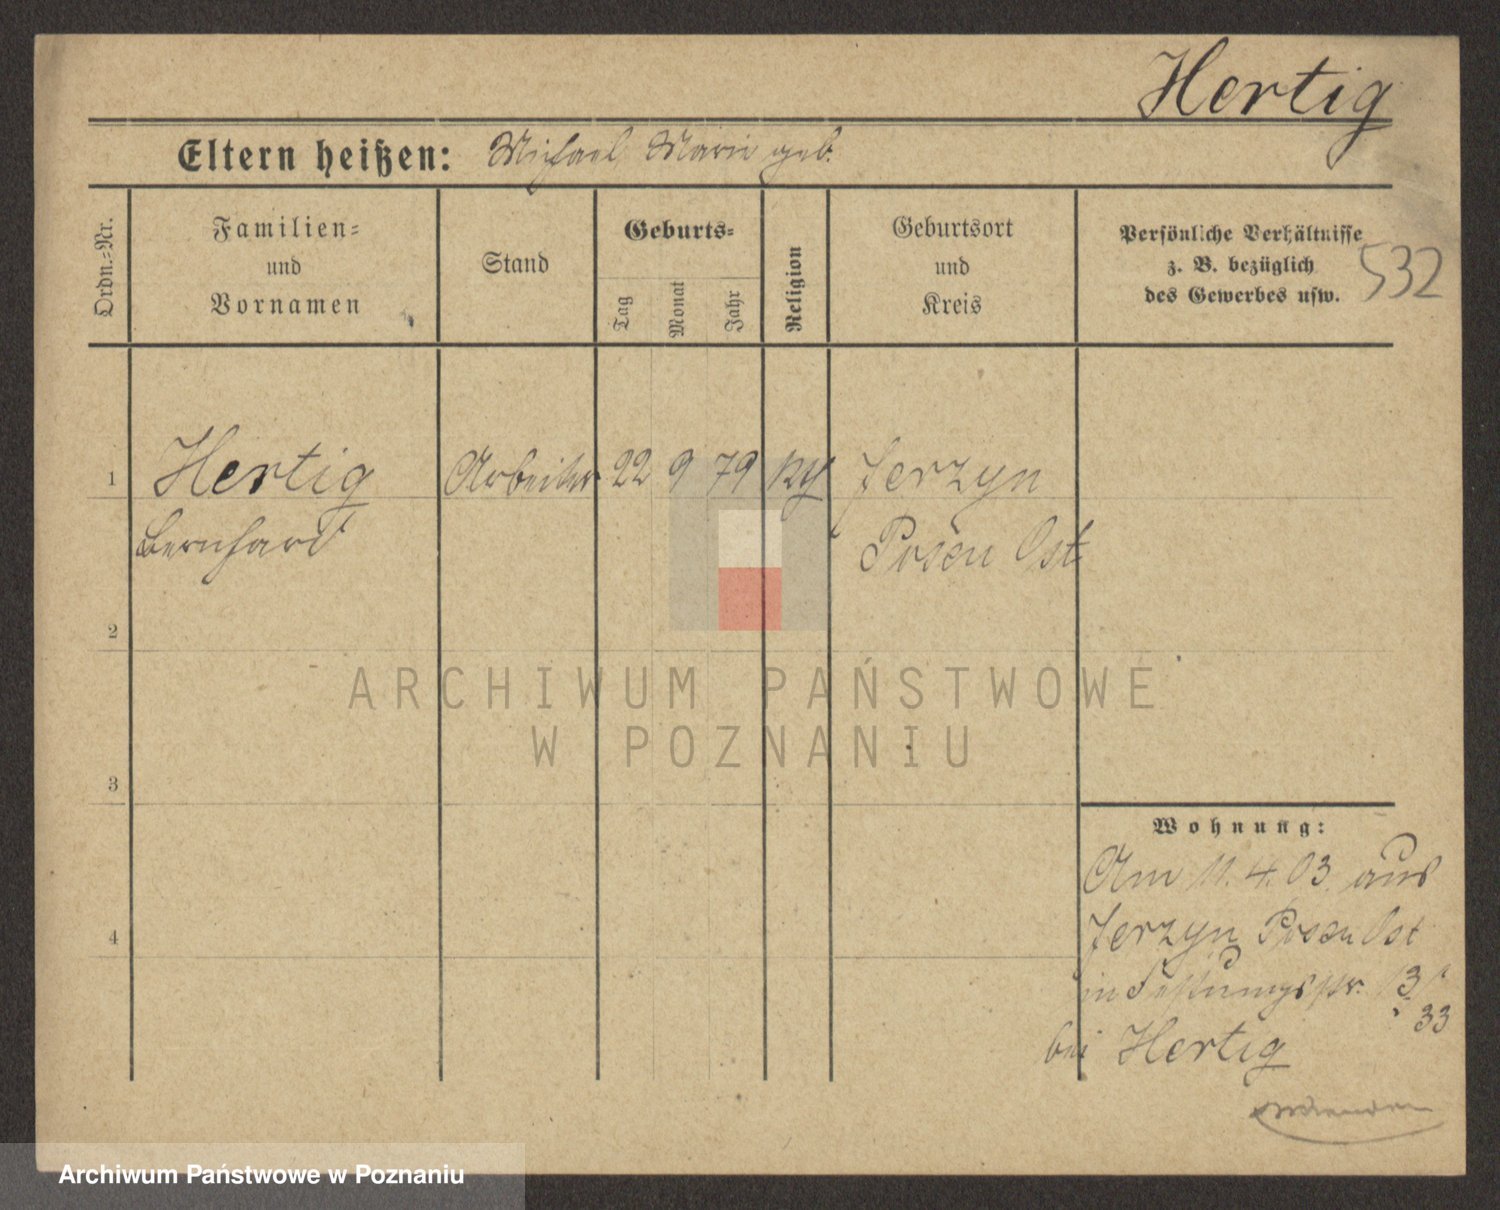 Hertig
Eltern heißen: Michael Marie geb.
Ordn.-Nr.
Familien-
und
Vornamen
Stand
Geburts-
Tag
Monat
Jahr
Religion
Geburtsort
und
Kreis
Persönliche Verhältnisse
z. B. bezüglich
des Gewerbes usw.
532
1 Hertig Arbeiter 22 9 79 Jerzyn
Bernhard Posen Ost
2
ARCHIWUM PAŃSTWOWE
W POZNANIU
3
Wohnung:
Am 11. 4. 03. aus
Jerzyn Posen Ost
4
in Festungsstr. 13
33
bei Hertig
Archiwum Państwowe w Poznaniu